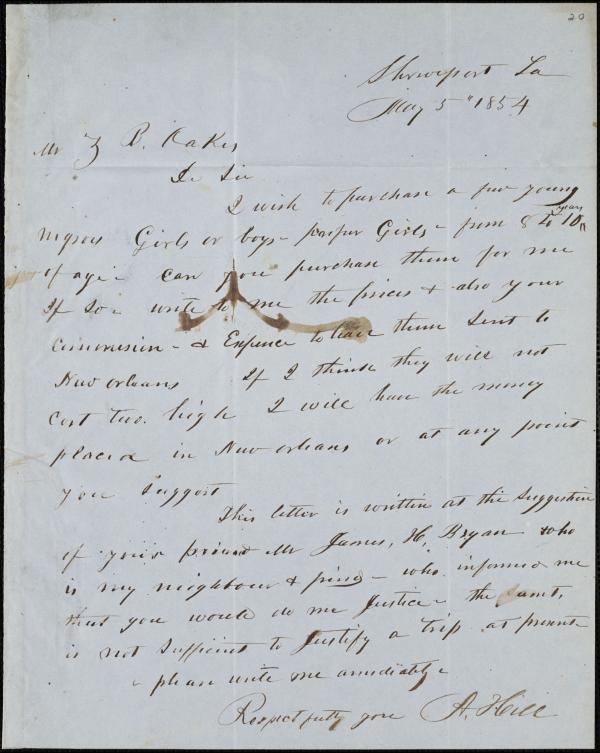 20
Shreveport La
May 5" 1854
Mr Z B. Oakes
De Sir
I wish to purchase a few young
negroes Girls or boys - prefur Girls - from 8 to 10 years
of age - can you purchase them for me
If So - write to me the prices & also your
Commission - & Expence to have them Sent to
New orleans If I think they will not
Cost two high I will have the money
placed in New orleans or at any point
you Suggest
This letter is written at the Suggestion
of your friend Mr James, H. Bryan who
is my neighbour & friend - who informed me
that you would do me Justice - the amt,
is not Sufficient to Justify a trip at present
- please write me amediately -
Respectfully you A. Hill